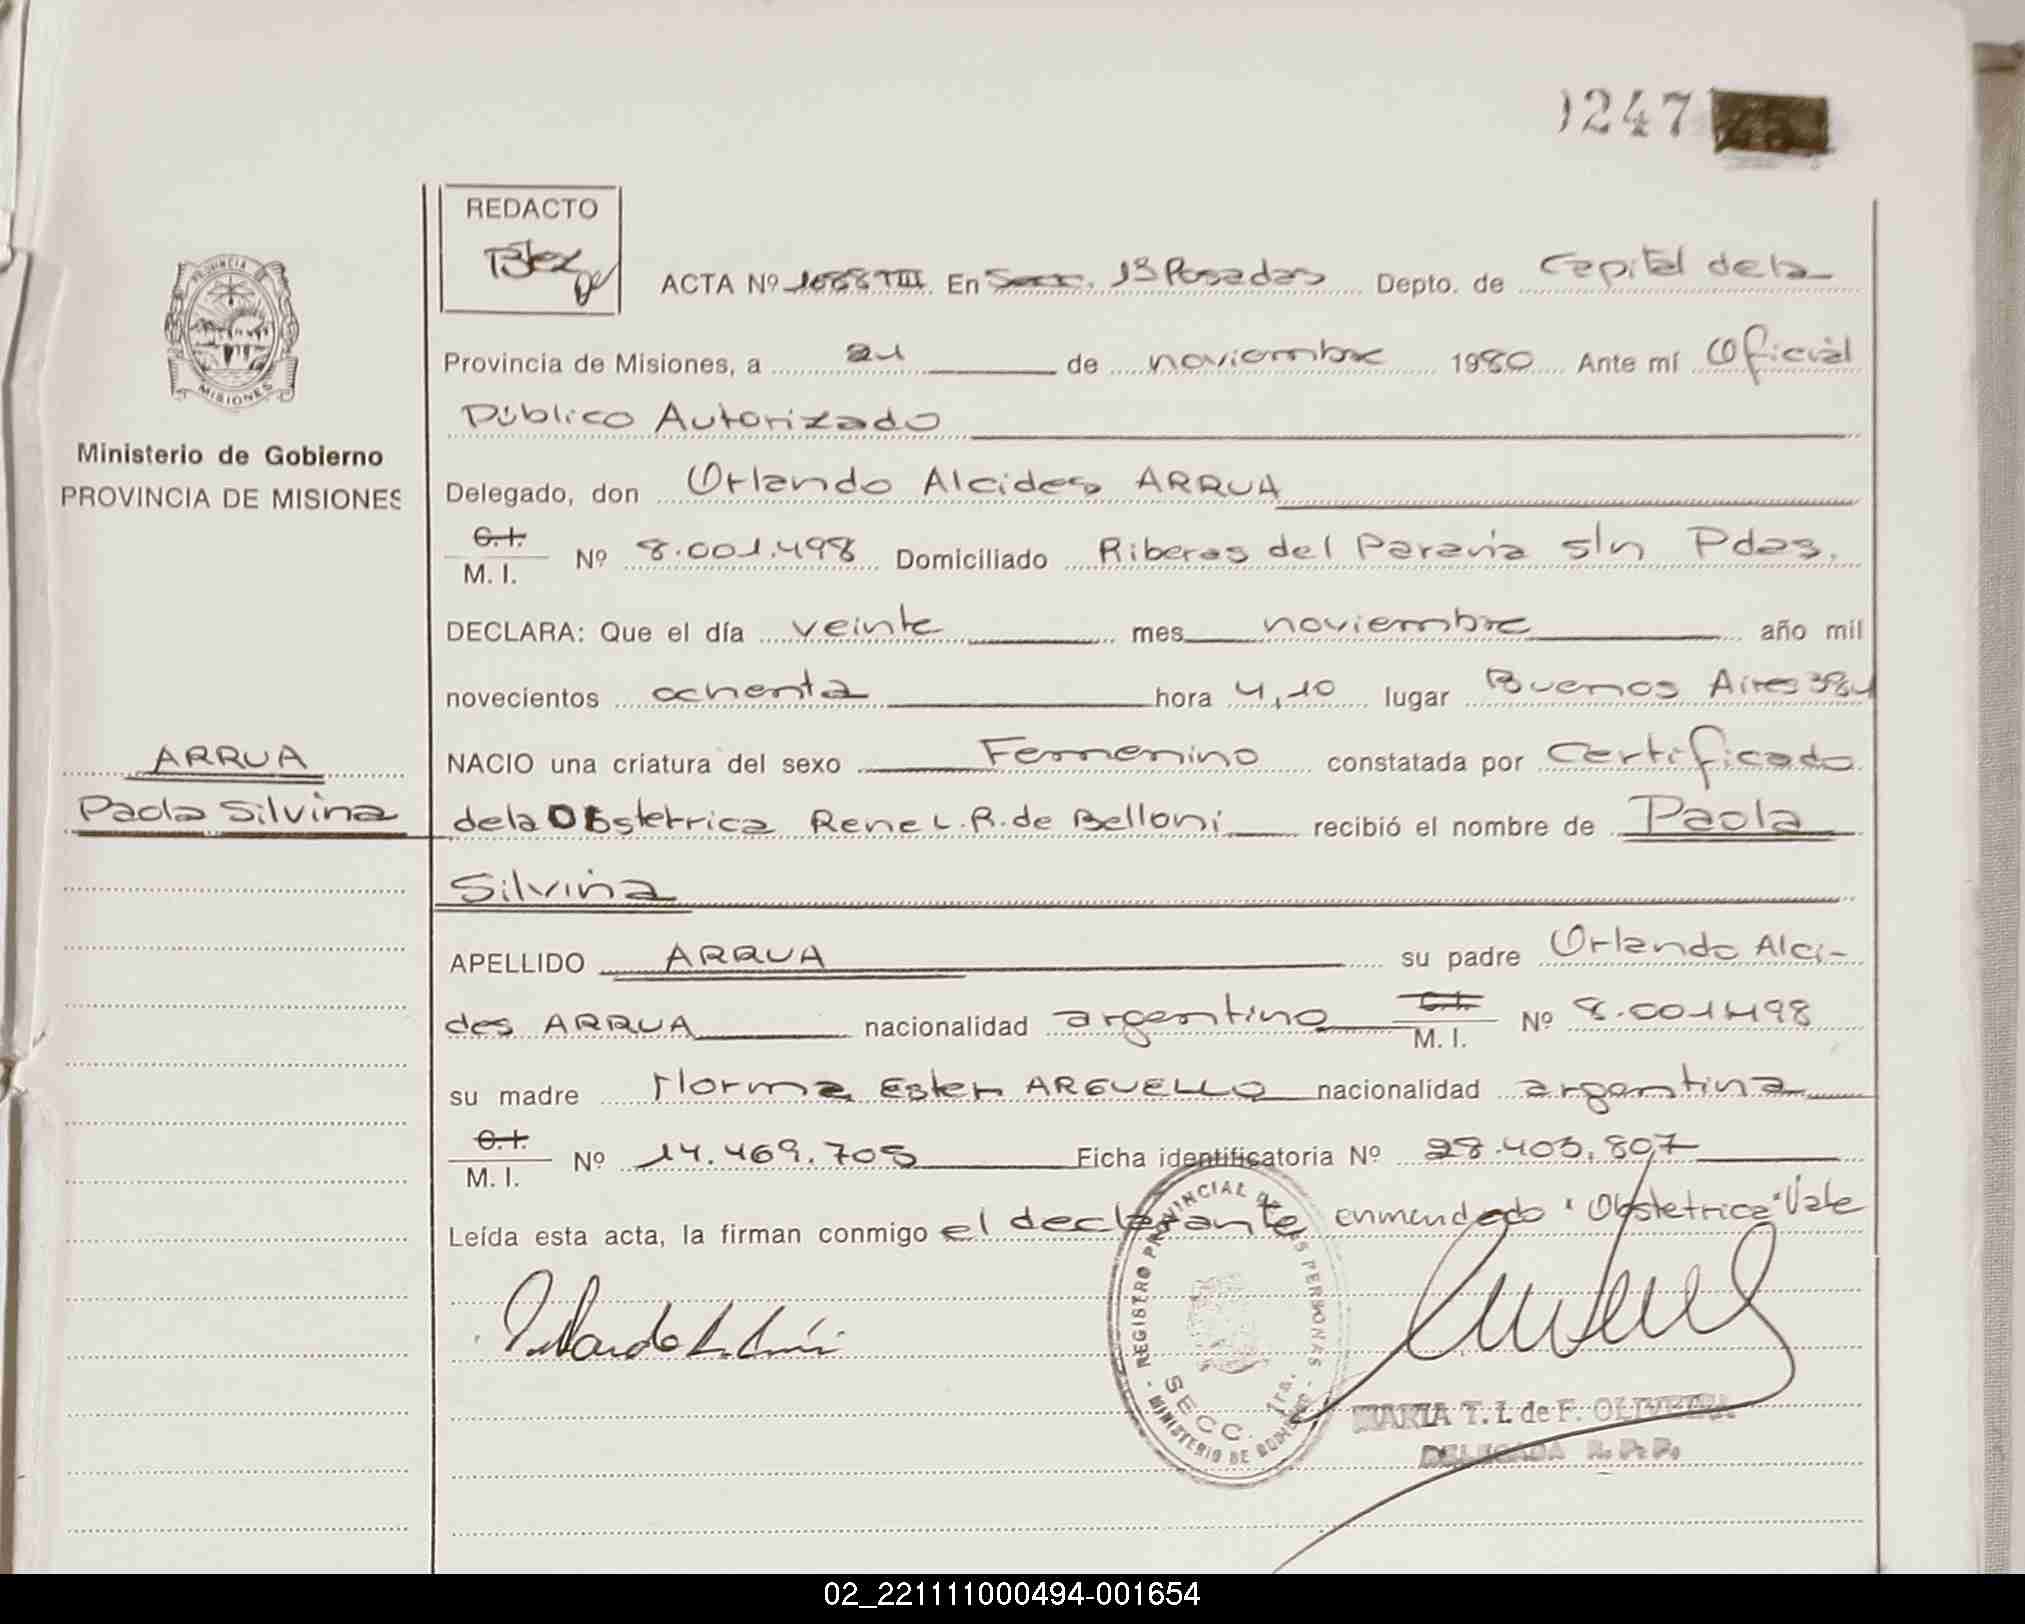 1247
REDACTO
ACTA Nº 1668 TIII En Secc. 1ª Posadas Depto. de Capital de la
Provincia de Misiones, a 21 de noviembre 1980 Ante mí Oficial
Público Autorizado
PROVINCIA DE
MISIONES
Ministerio de Gobierno
PROVINCIA DE MISIONES
Delegado, don Orlando Alcides ARRUA
C.I.
M. I. Nº 8.001.498 Domiciliado Riberas del Paraná s/n Pdas.
DECLARA: Que el día veinte mes noviembre año mil
novecientos ochenta hora 4,10 lugar Buenos Aires 384
ARRUA
Paola Silvina
NACIO una criatura del sexo Femenino constatada por Certificado
de la Obstetrica Rene L. R. de Belloni recibió el nombre de Paola
Silvina
APELLIDO ARRUA su padre Orlando Alci-
des ARRUA nacionalidad argentino C.I. M. I. Nº 8.001.498
su madre Norma Ester ARGUELLO nacionalidad argentina
C.I.
M. I. Nº 14.469.705 Ficha identificatoria Nº 28.403.807
Leída esta acta, la firman conmigo el declarante enmendado "Obstetrica" Vale
REGISTRO PROVINCIAL DE LAS PERSONAS
SECC. 1ra.
MINISTERIO DE GOBIERNO
MARIA T. I. de F. OLIVEIRA
DELEGADA R. P. P.
02_221111000494-001654